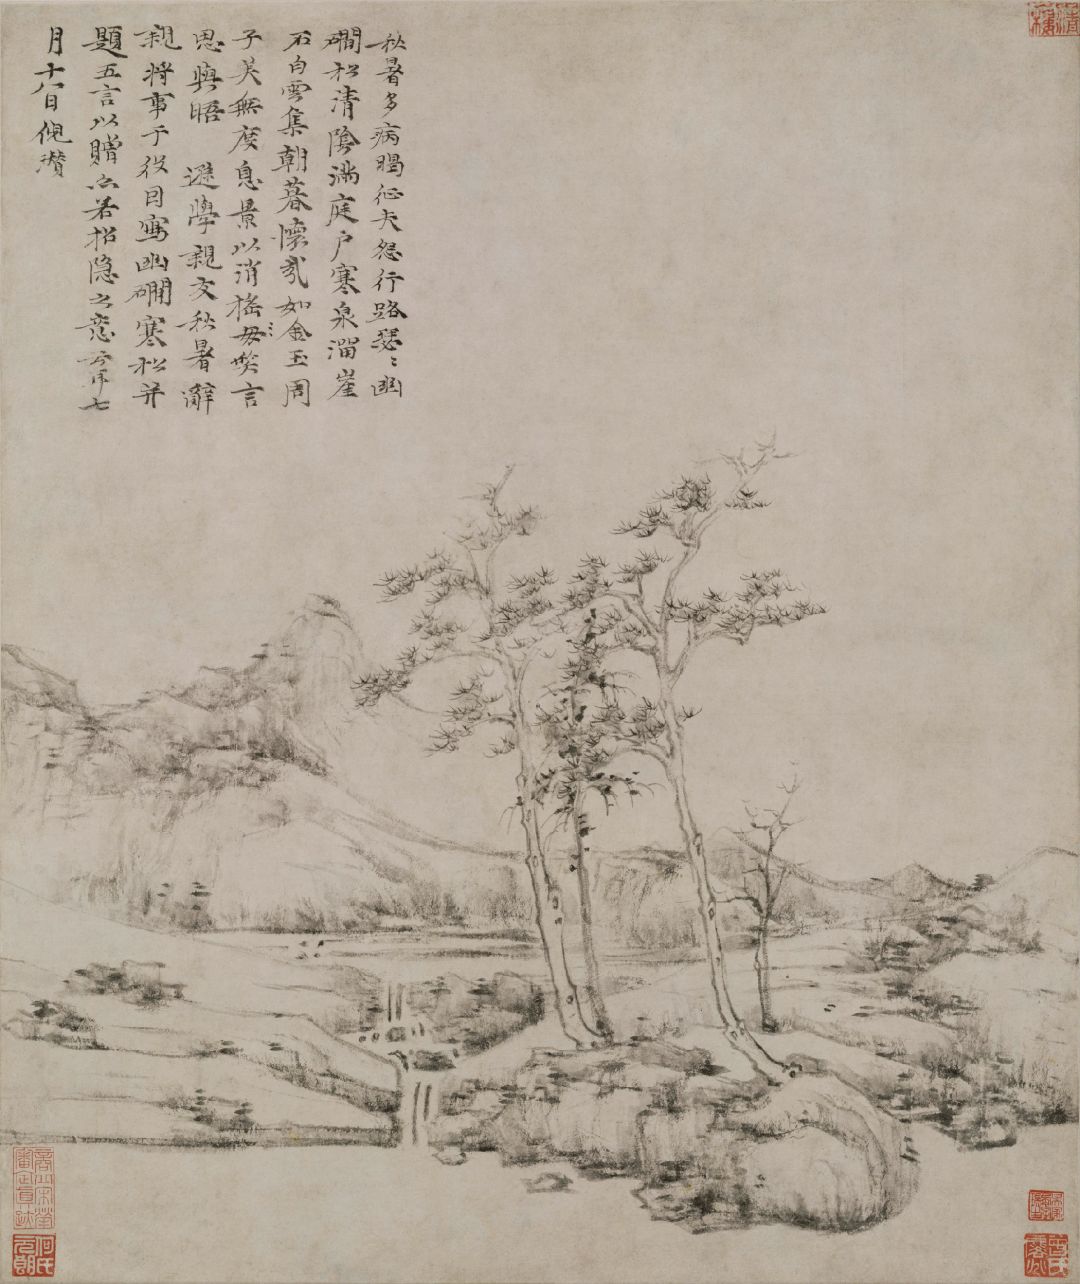 秋暑多病暍征夫怨行路瑟〻幽
磵松清陰滿庭户寒泉溜崖
石白雲集朝暮懷哉如金玉周
子美無度息景以消搖毋笑言
思與晤 遜學親友秋暑辭
親將事于役因寫幽磵寒松并
題五言以贈亦若招隱之意云耳七
月十八日倪瓚
商丘宋犖
審定真蹟
何氏
元朗